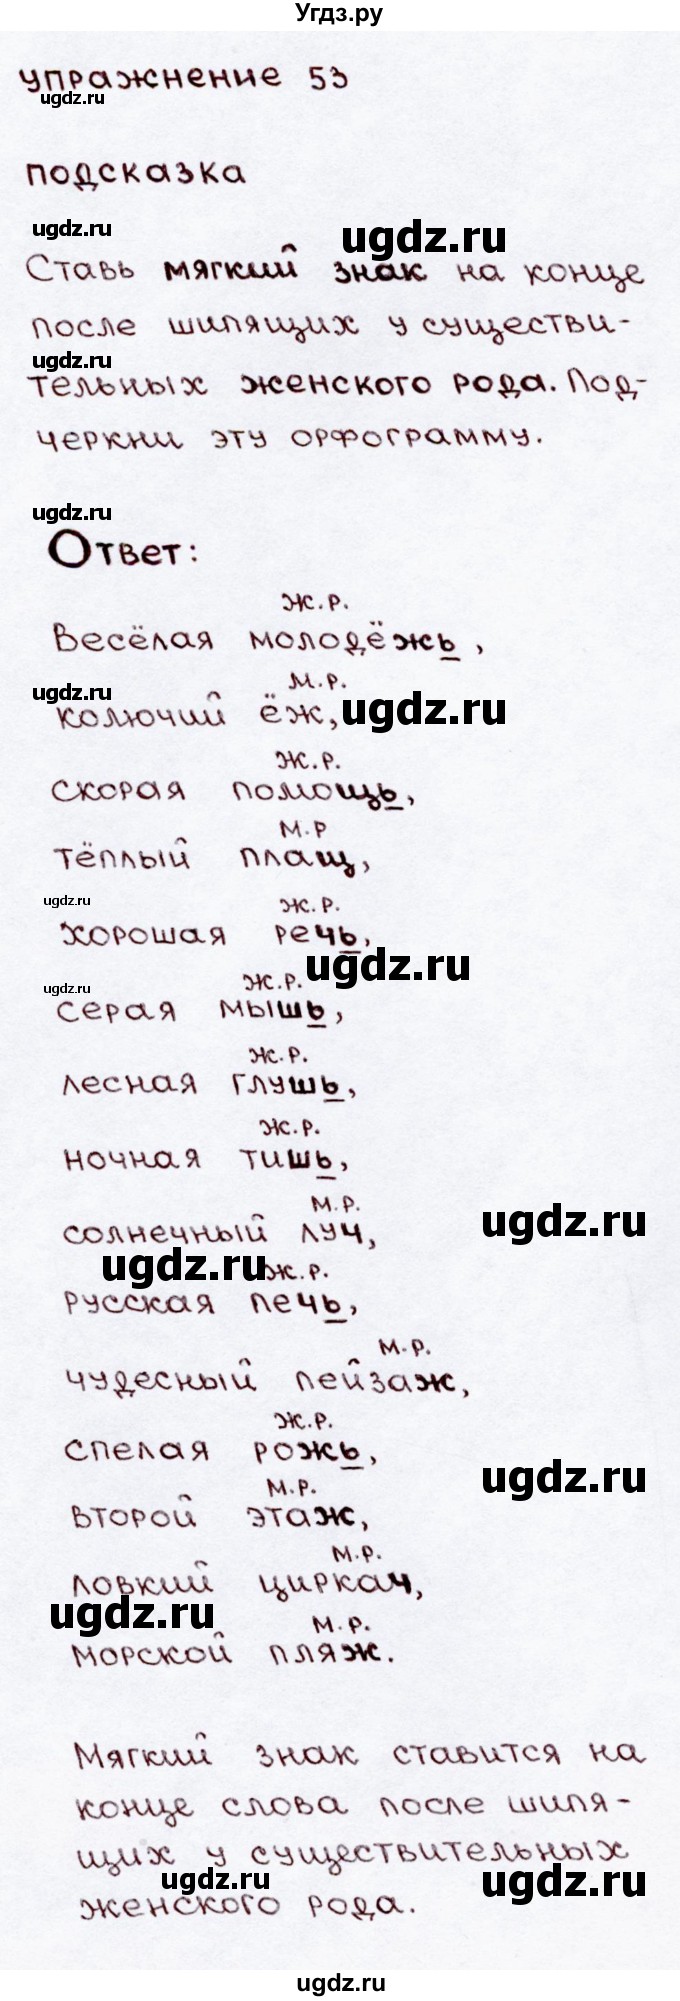 Угдз.ру
упражнение 53
ugdz.ru
подсказка
ugdz.ru
ugdz.ru
Ставь мягкий знак на конце
после шипящих у существи-
ugdz.ru
тельных женского рода. Под-
черкни эту орфограмму.
ugdz.ru
Ответ:
ж.р.
Весёлая молодёжь,
м.р.
ugdz.ru
ugdz.ru
колючий ёж,
ж.р.
скорая помощь,
м.р
тёплый плащ,
ugdz.ru
ж.р.
хорошая речь,
ugdz.ru
ugdz.ru
ж.р.
серая мышь,
ж.р.
лесная глушь,
ж.р.
ночная тишь,
м.р.
ugdz.ru
солнечный луч,
ugdz.ru
ж.р.
русская печь,
м.р.
чудесный пейзаж,
ж.р.
спелая рожь,
ugdz.ru
м.р.
второй этаж,
м.р.
ловкий циркач,
ugdz.ru
м.р.
морской пляж.
Мягкий знак ставится на
конце слова после шипя-
щих у существительных
ugdz.ru
ugdz.ru
женского рода.
ugdz.ru